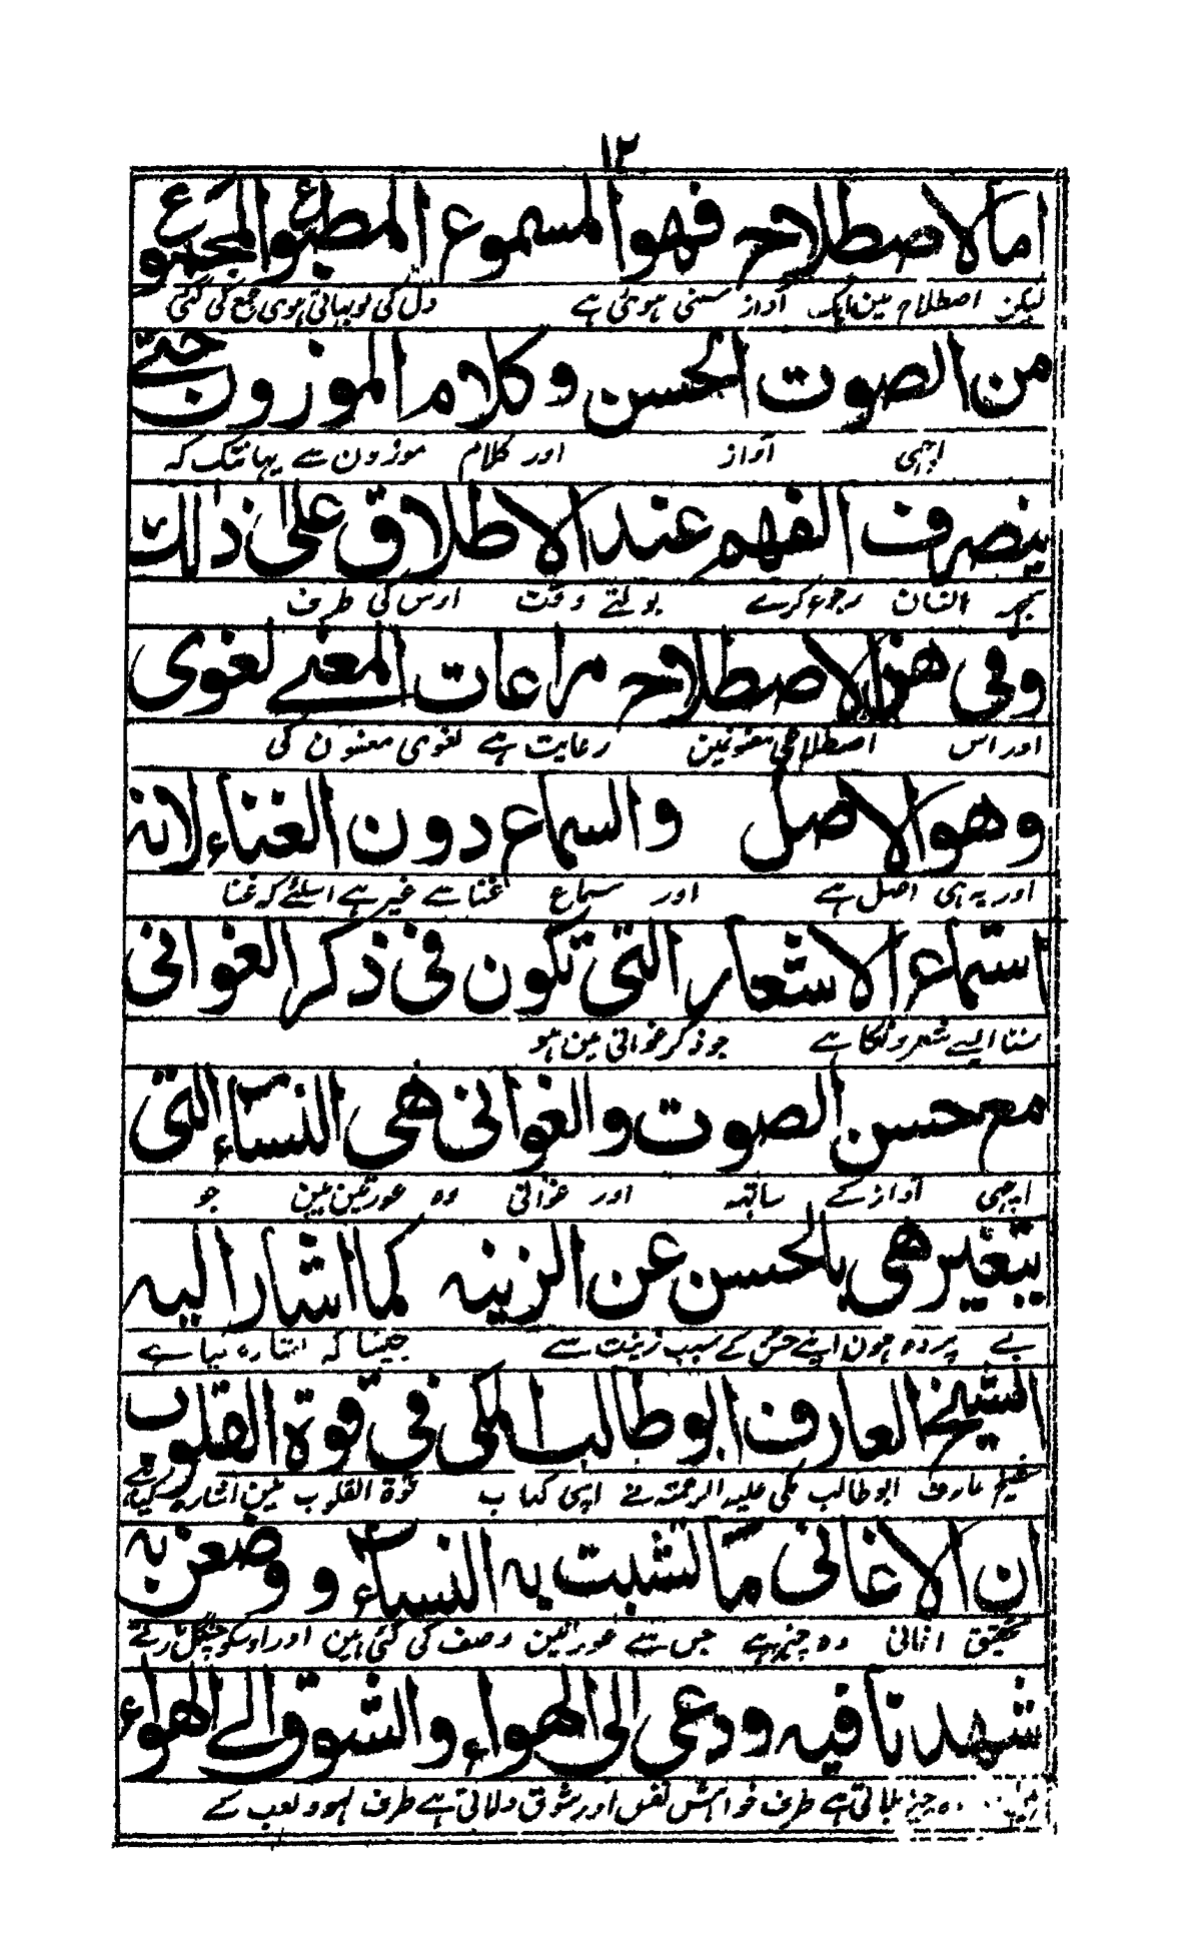 ١٢
اما لاصطلاح فهو المسموع المطبوع المجموع
لیکن اصطلاح مین ایک آواز سنی ہوئی ہے دل کی لوبہاتی ہوی جمع کی گئی
من الصوت الحسن وكلام الموزون حتے
اچھی آواز اور کلام موزون سے یہانتک کہ
ينصرف الفهم عند الاطلاق على ذلك
انسان رجوع کرے بولتے وقت اوس کی طرف
وفى هذا الاصطلاح مراعات المعنے لغوى
اور اس اصطلاحی معنونمین رعایت ہے لغوی معنون کی
وهو الاصل والسماع دون الغناء لانه
اور یہ ہی اصل ہے اور سماع غنا سے غیر ہے اسلئے کہ غنا
استماع الاشعار التى تكون فى ذكر الغوانى
سننا ایسے شعرونکا ہے جو ذکر غوانی مین ہو
مع حسن الصوت والغوانى هى النساء التى
اچھی آواز کے ساتہہ اور غوانی وہ عورتین ہین جو
يتغير هى بالحسن عن الزينه كما اشار اليه
بے پردہ ہون اپنے حسن کے سبب زینت سے جیسا کہ اشارہ کیا ہے
الشيخ العارف ابو طالب المكى فى قوة القلوب
شیخ عارف ابو طالب مکی علیہ الرحمتہ نے اپنی کتاب قوة القلوب مین اشارہ کیا ہے
ان الاغانى ما تشبت به النساء و وضعن به
تحقیق اغانی وہ چیز ہے جس سے عورتین وصف کی گئی ہین اور اوسکو
شهدنا فيه ودعى الى الهواء والشوق الے الهواء
وہ چیز بلاتی ہے طرف خواہش نفس اور شوق دلاتی ہے طرف لہو و لعب کے